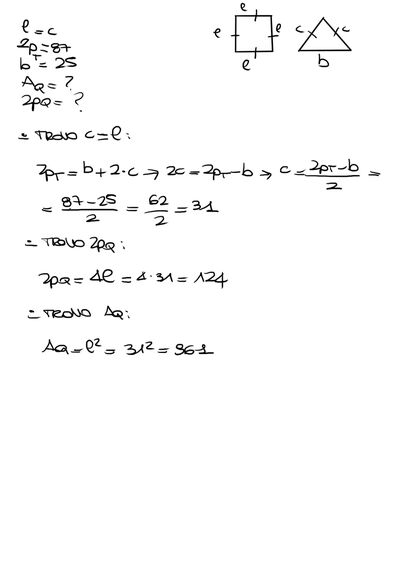 l = c
2p_T = 87
b = 25
A_Q = ?
2p_Q = ?
l l l l
c c b
= TROVO C = l :
2p_T = b + 2·c → 2c = 2p_T - b → c = \frac{2p_T - b}{2} =
= \frac{87 - 25}{2} = \frac{62}{2} = 31
= TROVO 2p_Q :
2p_Q = 4l = 4·31 = 124
= TROVO A_Q :
A_Q = l² = 31² = 961